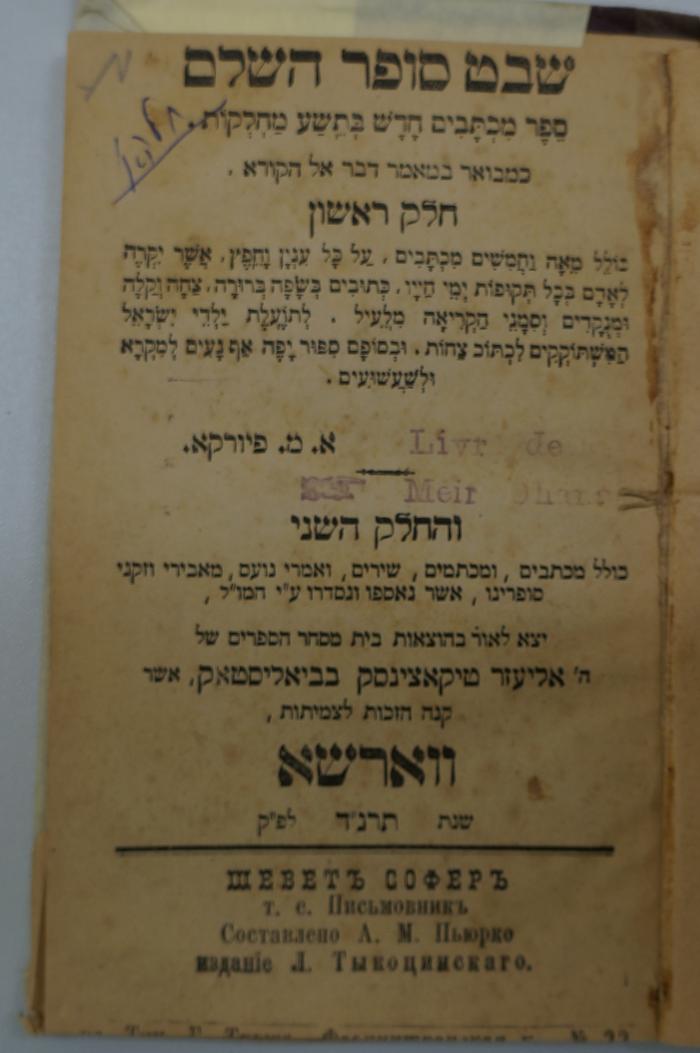 שבט סופר השלם
סֵפֶר מִכְתָּבִים חָדָשׁ בְּתֵשַׁע מַחְלְקוֹת.
כמבואר במאמר דבר אל הקורא.
חלק ראשון
כּוֹלֵל מֵאָה וַחֲמִשִּׁים מִכְתָּבִים, עַל כָּל עִנְיָן וָחֵפֶץ, אֲשֶׁר יִקְרֶה
לְאָדָם בְּכָל תְּקוּפוֹת יְמֵי חַיָּיו, כְּתוּבִים בְּשָׂפָה בְּרוּרָה, צַחָה וְקַלָּה
וּמְנֻקָדִים וְסִמָנֵי הַקְרִיאָה מִלְעֵיל. לְתוֹעֶלֶת יַלְדֵי יִשְׂרָאֵל
הַמִּשְׁתּוֹקְקִים לִכְתּוֹב צַחוֹת. וּבְסוֹפָם סִפּוּר יָפֶה אַף נָעִים לְמִקְרָא
וּלְשַׁעֲשׁוּעִים.
א. מ. פיורקא.
Livr de
Meir
והחלק השני
כולל מכתבים, ומכתמים, שירים, ואמרי נועם, מאבירי וזקני
סופרינו, אשר נאספו ונסדרו ע"י המו"ל,
יצא לאור בהוצאות בית מסחר הספרים של
ה' אליעזר טיקאצינסק בביאליסטאק, אשר
קנה הזכות לצמיתות,
ווארשא
שנת תרנ"ד לפ"ק
ШЕВЕТЪ СОФЕРЪ
т. е. Письмовникъ
Составлено А. М. Пьюрко
изданіе Л. Тыкоцинскаго.